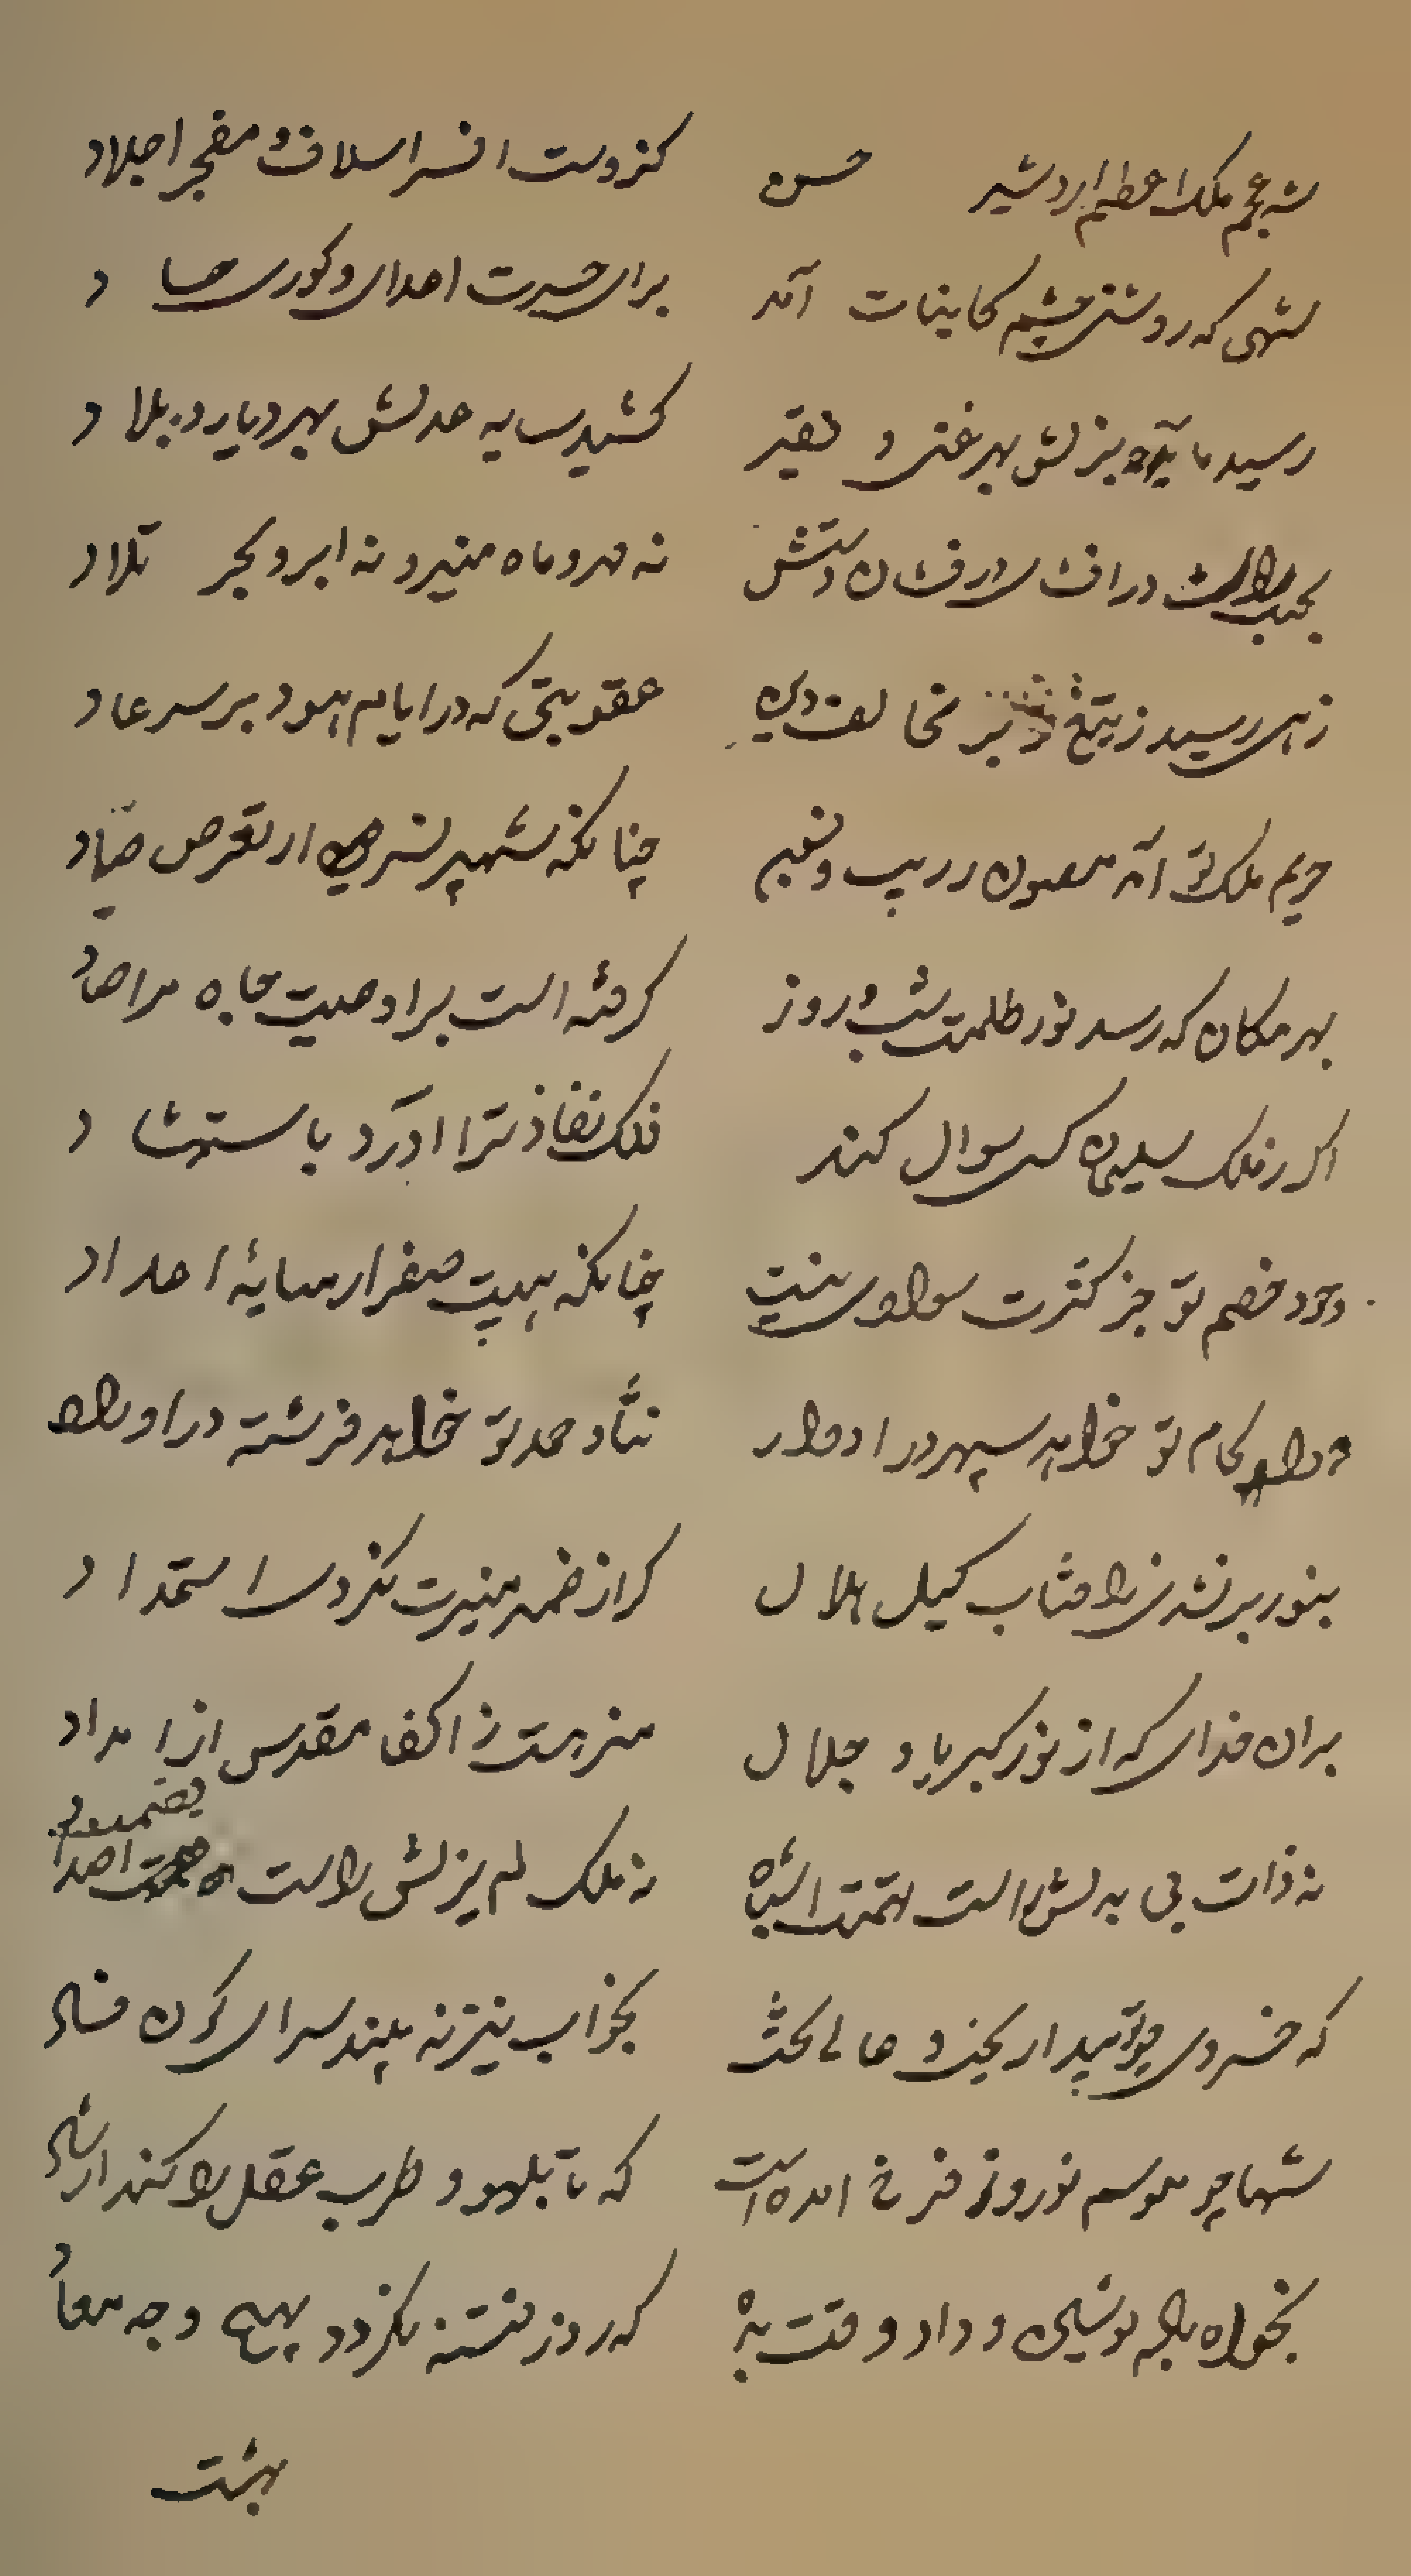 شه عجم ملک اعظم اردشیر حسن کزوست افسر اسلاف و مفخر اجداد
شهی که روشنی چشم کاینات آمد برای حسرت اعدای و کوری حساد
رسید مایده بزلش بهر غنی و فقیر کشید سایه عدلش بهر دیار و بلاد
بجنب در افشان دستش نه مهر و ماه منیر و نه ابر و بحر تلاد
زهی رسید ز تیغ تو بر مخالف دین عقوبتی که در ایام هود بر سر عاد
حریم ملک تو آمد مصون ز ریب و نقیم چنانکه شهپر نسر از تعرض صیاد
بهر مکان که رسد نور ظلمت شب و روز گرفته است برا وصیت جاه مراصاد
اگر ز ملک سلیمان کسی سوال کند فلک نفاذ ترا آورد باستشهاد
وجود خصم تو جز کثرت سوادی نیست چنانکه هیبت صفر از میانه اعداد
دوام کام تو خواهد سپهر در ادوار ثنا و حمد تو خواهد فرشته در اوراد
بنور بر نشدی زافتاب کیل هلال گر از ضمیر منیرت نکردی استمداد
بران خدای که از نور کبریا و جلال منزهست ز اکفا مقدس از امداد
نه ذات بی بدلش راست تهمت اشباه نه ملک لم یزلش راست وصمت اضداد
که خسروی چو تو بیدار بخت و عالی بخت بخواب نیز نه بیند سرای کون فساد
شها چو موسم نوروز فرخ امده است که تا بلهو و طرب عقل را کند ارشاد
بخواه باده نوشین و داد وقت بده که روز رفته نگردد بهیچ وجه معاد
بهشت